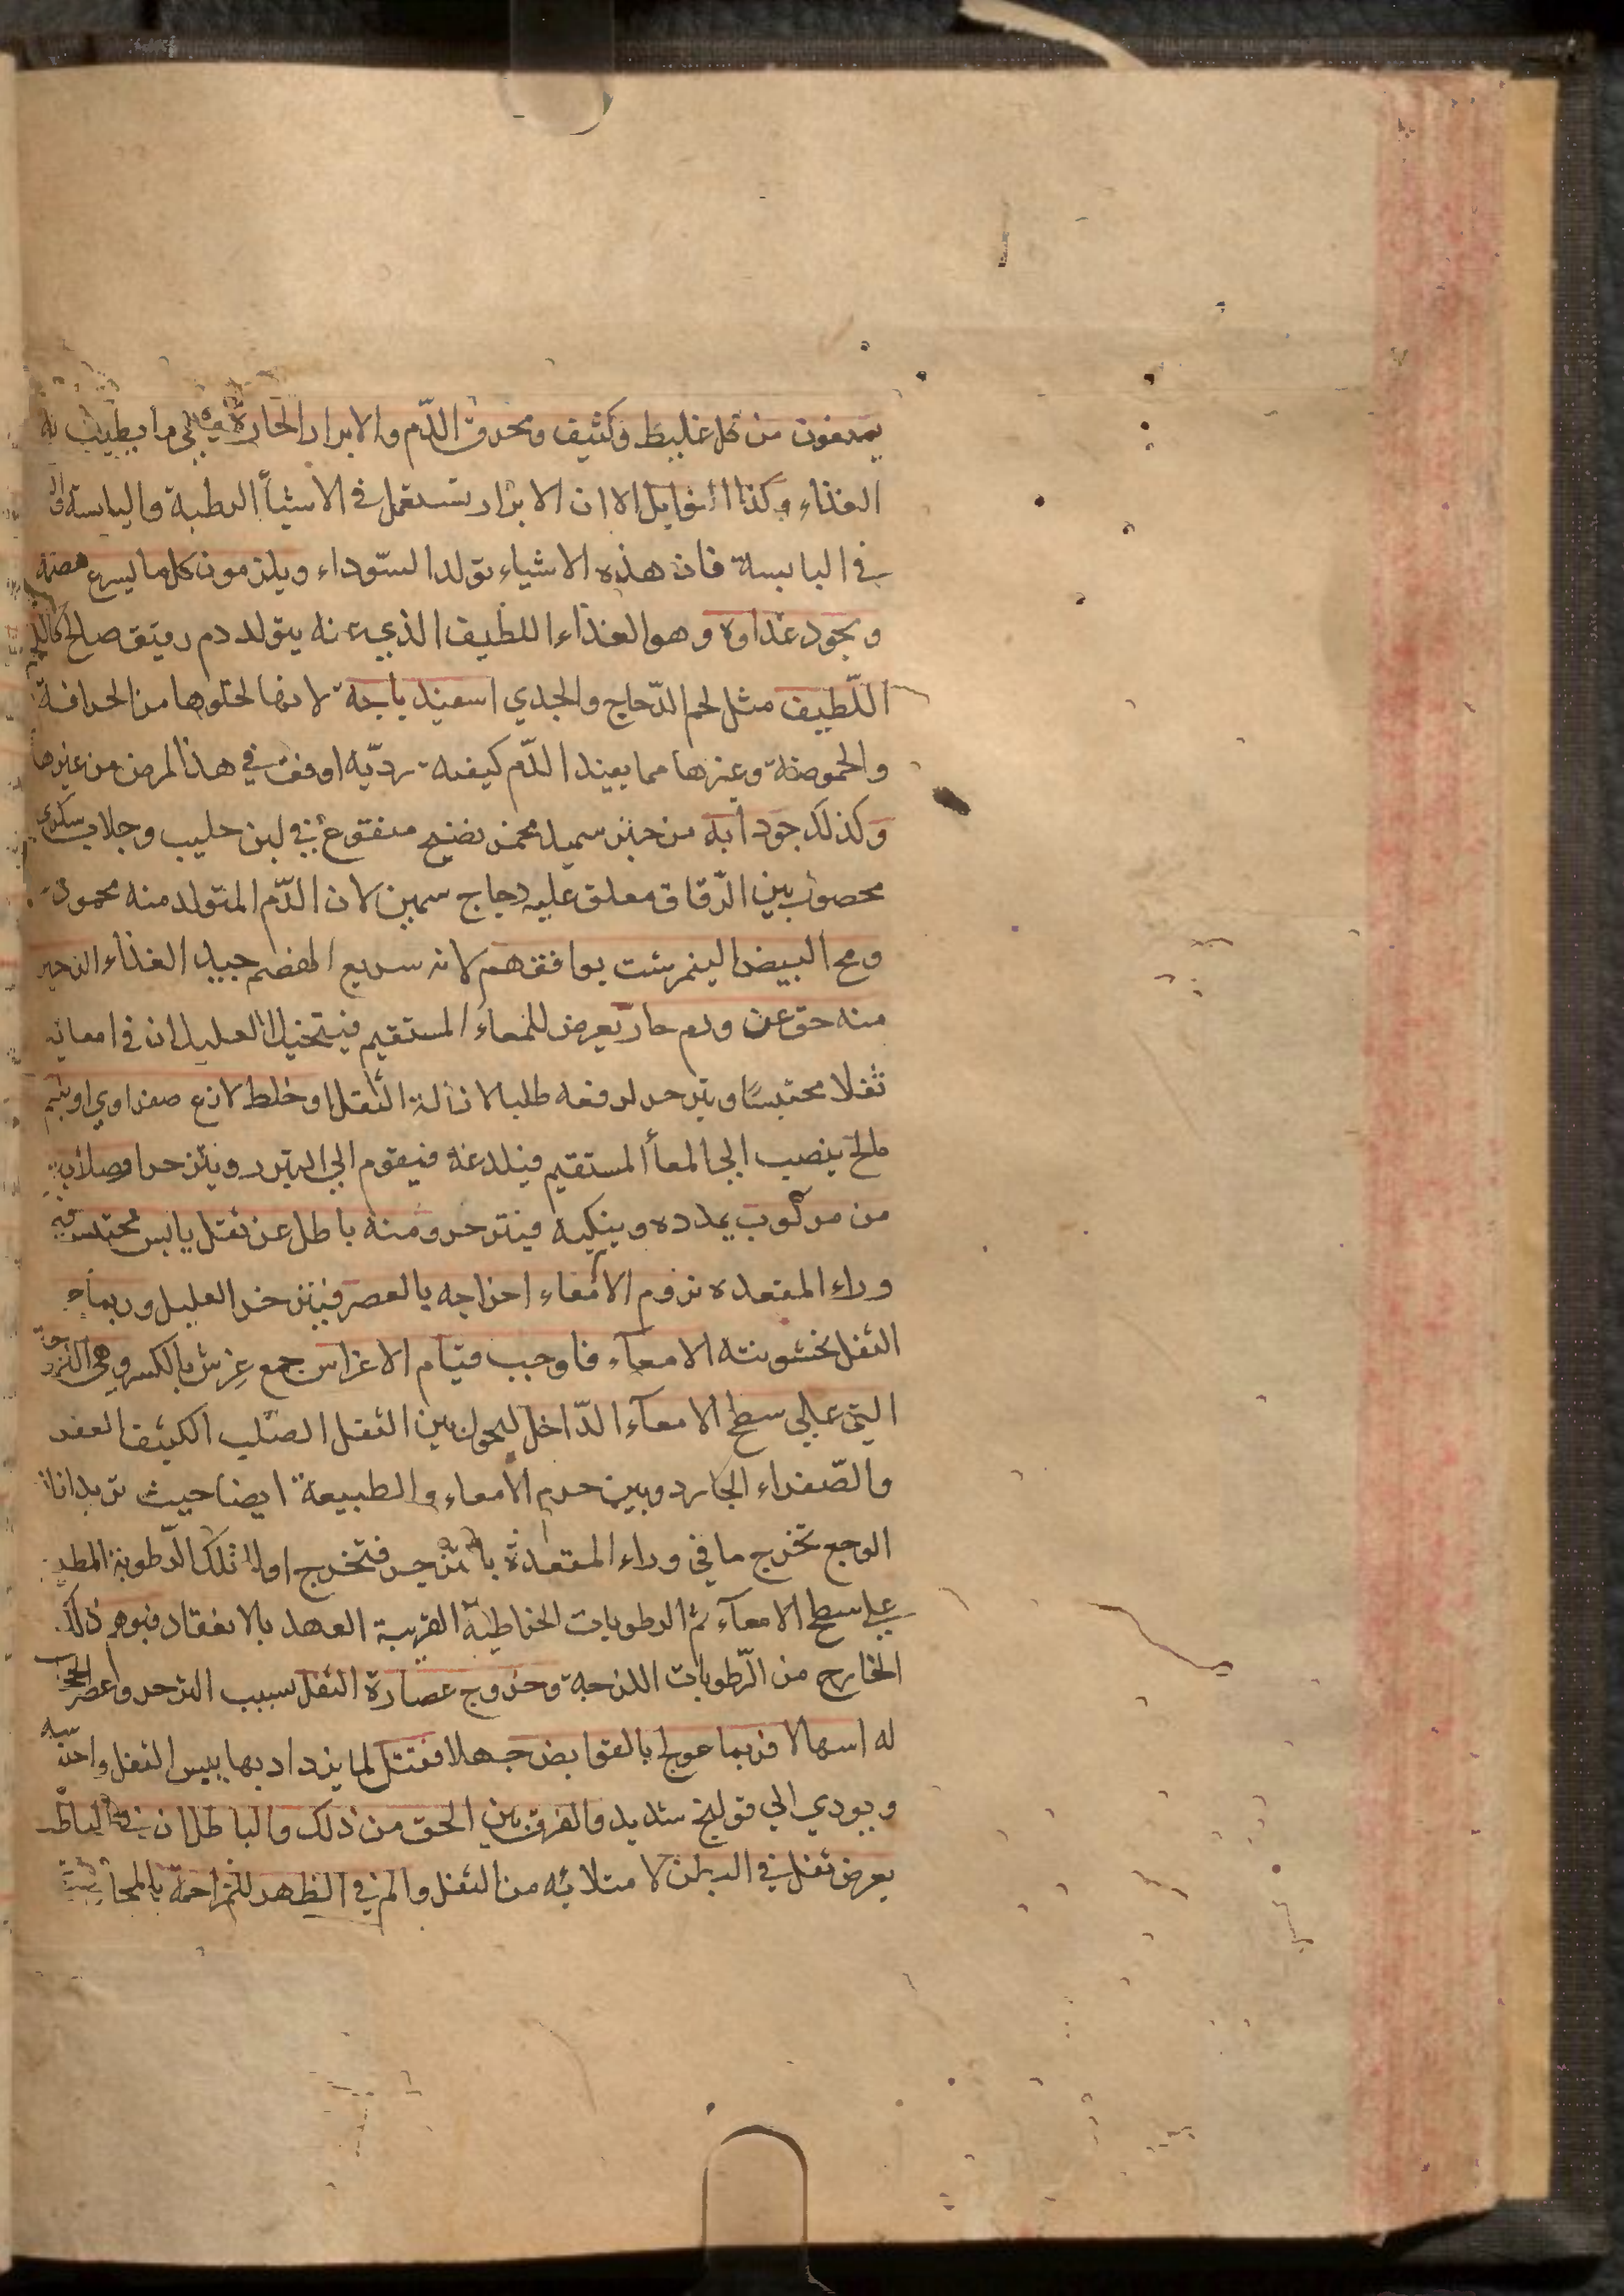 يمنعون من كل غليظ وكثيف ومحرق الدّم والابزار الحارة هي ما يطيب به
الغذاء وكذا التوابل الا ان الابزار تستعمل في الاشيأ الرطبة واليابسة
في اليابسة فان هذه الاشياء تولد السّوداء ويلزمون كل ما يسرع هضمه
ويجود غذاوه وهو الغذاء اللطيف الذي عنه يتولد دم رقيق صالح كاللحم
اللّطيف مثل لحم الدّجاج والجدي اسفيدباجة لانها لخلوها من الحرافة
والحموضة وغيرها مما يفيد الدّم كيفيه رديّه اوفق في هذا المرض من غيرها
وكذلك جودابه من خبز سميد مخمر نضيج منقوع في لبن حليب وجلاب سكري
محصوب بين الرّقاق معلق عليه دجاج سمين لان الدّم المتولد منه محمود
ومح البيض النيمرشت يوافقهم لانه سريع الهضم جيد الغذاء الزحير
منه حق عن ورم حارّ يعرض للمعاء المستقيم فيتخيل العليل ان في امعايه
ثفلا محتبسًا ويتزحر لدفعه طلبا لازالة الثفل او خلط لاذع صفراوي او بلغم
مالح ينصب الي المعأ المستقيم فيلدغه فيقوم الي التبرز ويتزحر او صلابه
من مركوب يمدده وينكيه فيتزحر ومنه باطل عن ثفل يابس محتبس في
وراء المقعده تروم الامعاء اخراجه بالعصر فيتزحر العليل وربما
الثفل بخشونته الامعآء فاوجب قيام الاغراس جمع غِرس بالكسر وهي اللزوجة
التي علي سطح الامعآء الدّاخل ليحول بين الثفل الصلب الكثيف
والصّفراء الجارد وبين جرم الامعاء والطبيعة ايضا حيث تريد
الوجع تخرج ما في وراء المقعدة بالتزحر فتخرج اولا تلك الرّطوبة
علي سطح الامعآء ثم الرطوبات المخاطيّة القريبة العهد بالانعقاد فيوهم ذلك
الخارج من الرّطوبات اللزجة وخروج عصارة الثفل بسبب التزحر وعصر
له اسهالا فربما عولج بالقوابض جهلا فقتل لما يزداد بها يبس الثفل
ويودي الي قولنج شديد والفرق بين الحق من ذلك والباطل ان في الباطل
يعرض ثفل في البطن لامتلائه من الثفل والم في الظهر للمزاحمة بالمجاورة